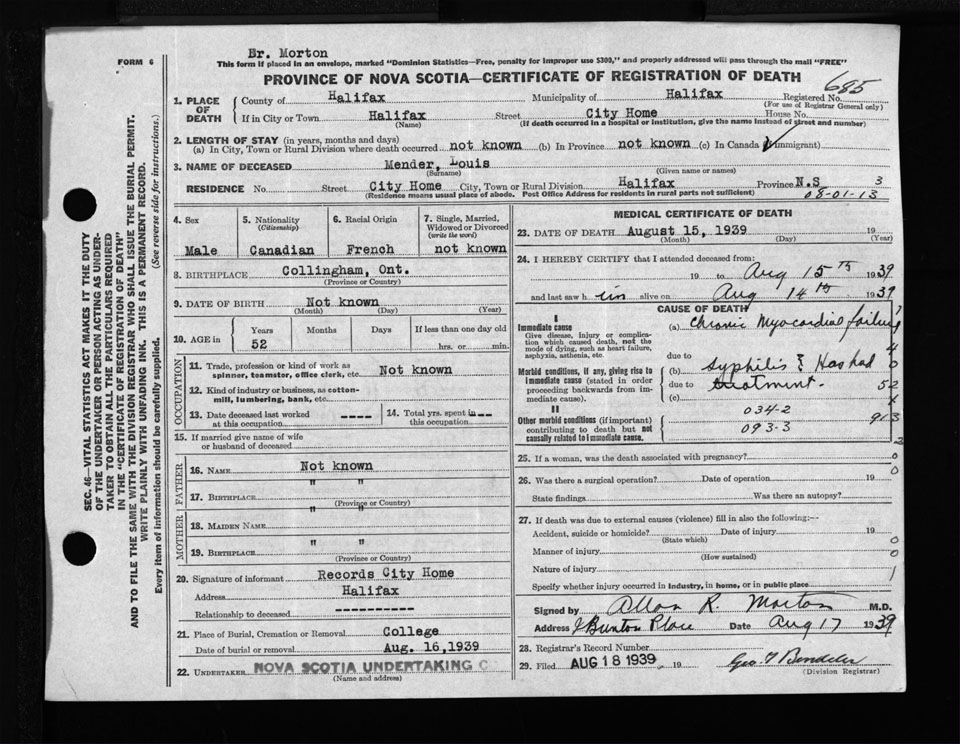 FORM 6
Br. Morton
This form if placed in an envelope, marked "Dominion Statistics—Free, penalty for improper use $300," and properly addressed will pass through the mail "FREE"
PROVINCE OF NOVA SCOTIA—CERTIFICATE OF REGISTRATION OF DEATH
685
1. PLACE OF DEATH
County of Halifax Municipality of Halifax Registered No.
(For use of Registrar General only)
If in City or Town Halifax Street City Home House No.
(Name) (If death occurred in a hospital or institution, give the name instead of street and number)
2. LENGTH OF STAY (in years, months and days)
(a) In City, Town or Rural Division where death occurred not known (b) In Province not known (c) In Canada (if immigrant)
3. NAME OF DECEASED Mender, Louis
(Surname) (Given name or names)
RESIDENCE No. Street City Home City, Town or Rural Division Halifax Province N.S 3
(Residence means usual place of abode. Post Office Address for residents in rural parts not sufficient) 08-01-13
4. Sex
Male
5. Nationality
(Citizenship)
Canadian
6. Racial Origin
French
7. Single, Married, Widowed or Divorced
(write the word)
not known
8. BIRTHPLACE Collingham, Ont.
(Province or Country)
9. DATE OF BIRTH Not known
(Month) (Day) (Year)
10. AGE in
Years Months Days If less than one day old
52 hrs. or min.
OCCUPATION
11. Trade, profession or kind of work as spinner, teamster, office clerk, etc. Not known
12. Kind of industry or business, as cotton-mill, lumbering, bank, etc.
13. Date deceased last worked at this occupation ----
14. Total yrs. spent in this occupation --
15. If married give name of wife or husband of deceased
FATHER
16. NAME Not known
17. BIRTHPLACE " "
(Province or Country)
MOTHER
18. MAIDEN NAME " "
19. BIRTHPLACE " "
(Province or Country)
20. Signature of informant Records City Home
Address Halifax
Relationship to deceased -----------
21. Place of Burial, Cremation or Removal College
Date of burial or removal Aug. 16,1939
22. UNDERTAKER NOVA SCOTIA UNDERTAKING C
(Name and address)
MEDICAL CERTIFICATE OF DEATH
23. DATE OF DEATH August 15, 1939 19
(Month) (Day) (Year)
24. I HEREBY CERTIFY that I attended deceased from:
19 to Aug 15th 1939
and last saw him alive on Aug 14th 1939
CAUSE OF DEATH
I
Immediate cause
Give disease, injury or complication which caused death, not the mode of dying, such as heart failure, asphyxia, asthenia, etc.
(a) Chronic Myocardial failure
due to
Morbid conditions, if any, giving rise to immediate cause (stated in order proceeding backwards from immediate cause).
(b) Syphilis & Has had
due to treatment.
(c)
II
Other morbid conditions (if important) contributing to death but not causally related to immediate cause.
034-2
093-3
25. If a woman, was the death associated with pregnancy?
26. Was there a surgical operation? Date of operation 19
State findings Was there an autopsy?
27. If death was due to external causes (violence) fill in also the following:—
Accident, suicide or homicide? Date of injury 19
(State which)
Manner of injury
(How sustained)
Nature of injury
Specify whether injury occurred in industry, in home, or in public place
Signed by Allan R. Morton M.D.
Address Place Date Aug 17 1939
28. Registrar's Record Number
29. Filed AUG 18 1939 19
(Division Registrar)
SEC. 46—VITAL STATISTICS ACT MAKES IT THE DUTY
OF THE UNDERTAKER OR PERSON ACTING AS UNDER-
TAKER TO OBTAIN ALL THE PARTICULARS REQUIRED
IN THE "CERTIFICATE OF REGISTRATION OF DEATH"
AND TO FILE THE SAME WITH THE DIVISION REGISTRAR WHO SHALL ISSUE THE BURIAL PERMIT.
WRITE PLAINLY WITH UNFADING INK. THIS IS A PERMANENT RECORD.
Every item of information should be carefully supplied. (See reverse side for instructions.)